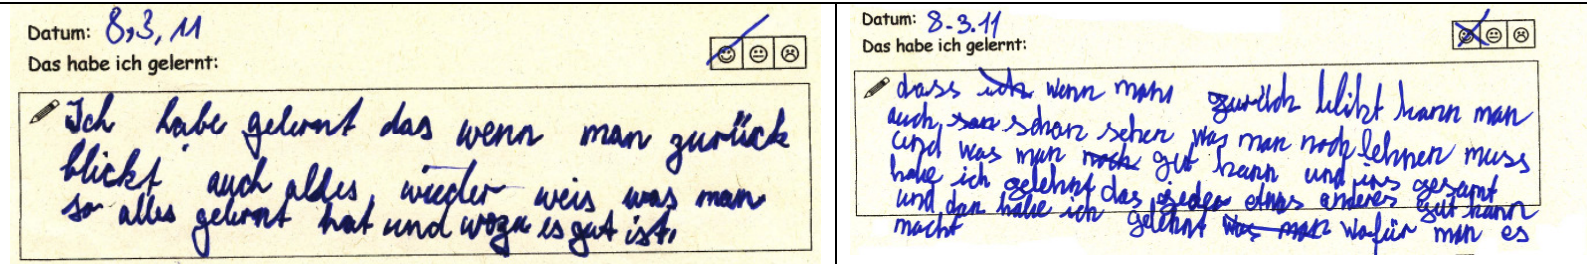 Datum: 8,3,11
Das habe ich gelernt:
Ich habe gelernt das wenn man zurück
blickt auch alles wieder weis was man
so alles gelernt hat und wozu es gut ist.
Datum: 8.3.11
Das habe ich gelernt:
dass ich wenn man zurück blikt kann man
auch son schon sehen was man noch lehnen muss
und was man noch gut kann und ins gesamt
habe ich gelehnt das jeder etwas anderes gut kann
und dan habe ich gelehnt was man wofür man es
macht